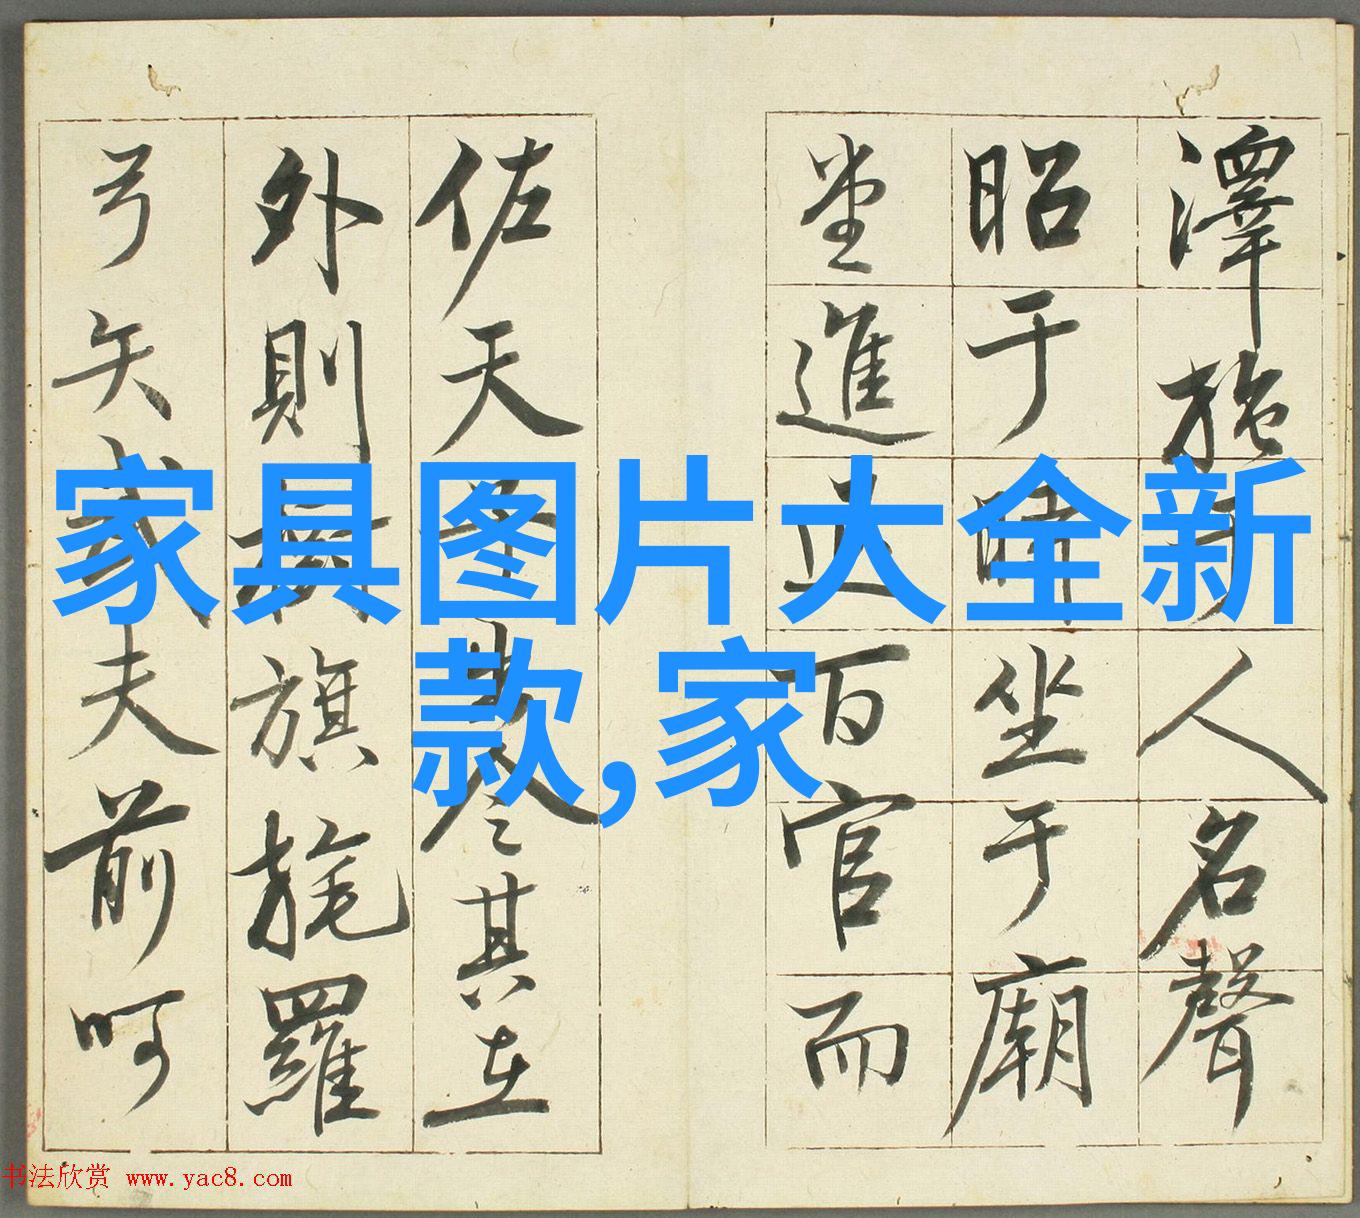 澤施于人名聲
昭于時坐于廟
堂進退百官而
佐天子出令其在
外則樹旗旄羅
弓矢武夫前呵
家具图片大全新
款,家
书法欣赏 www.yac8.com